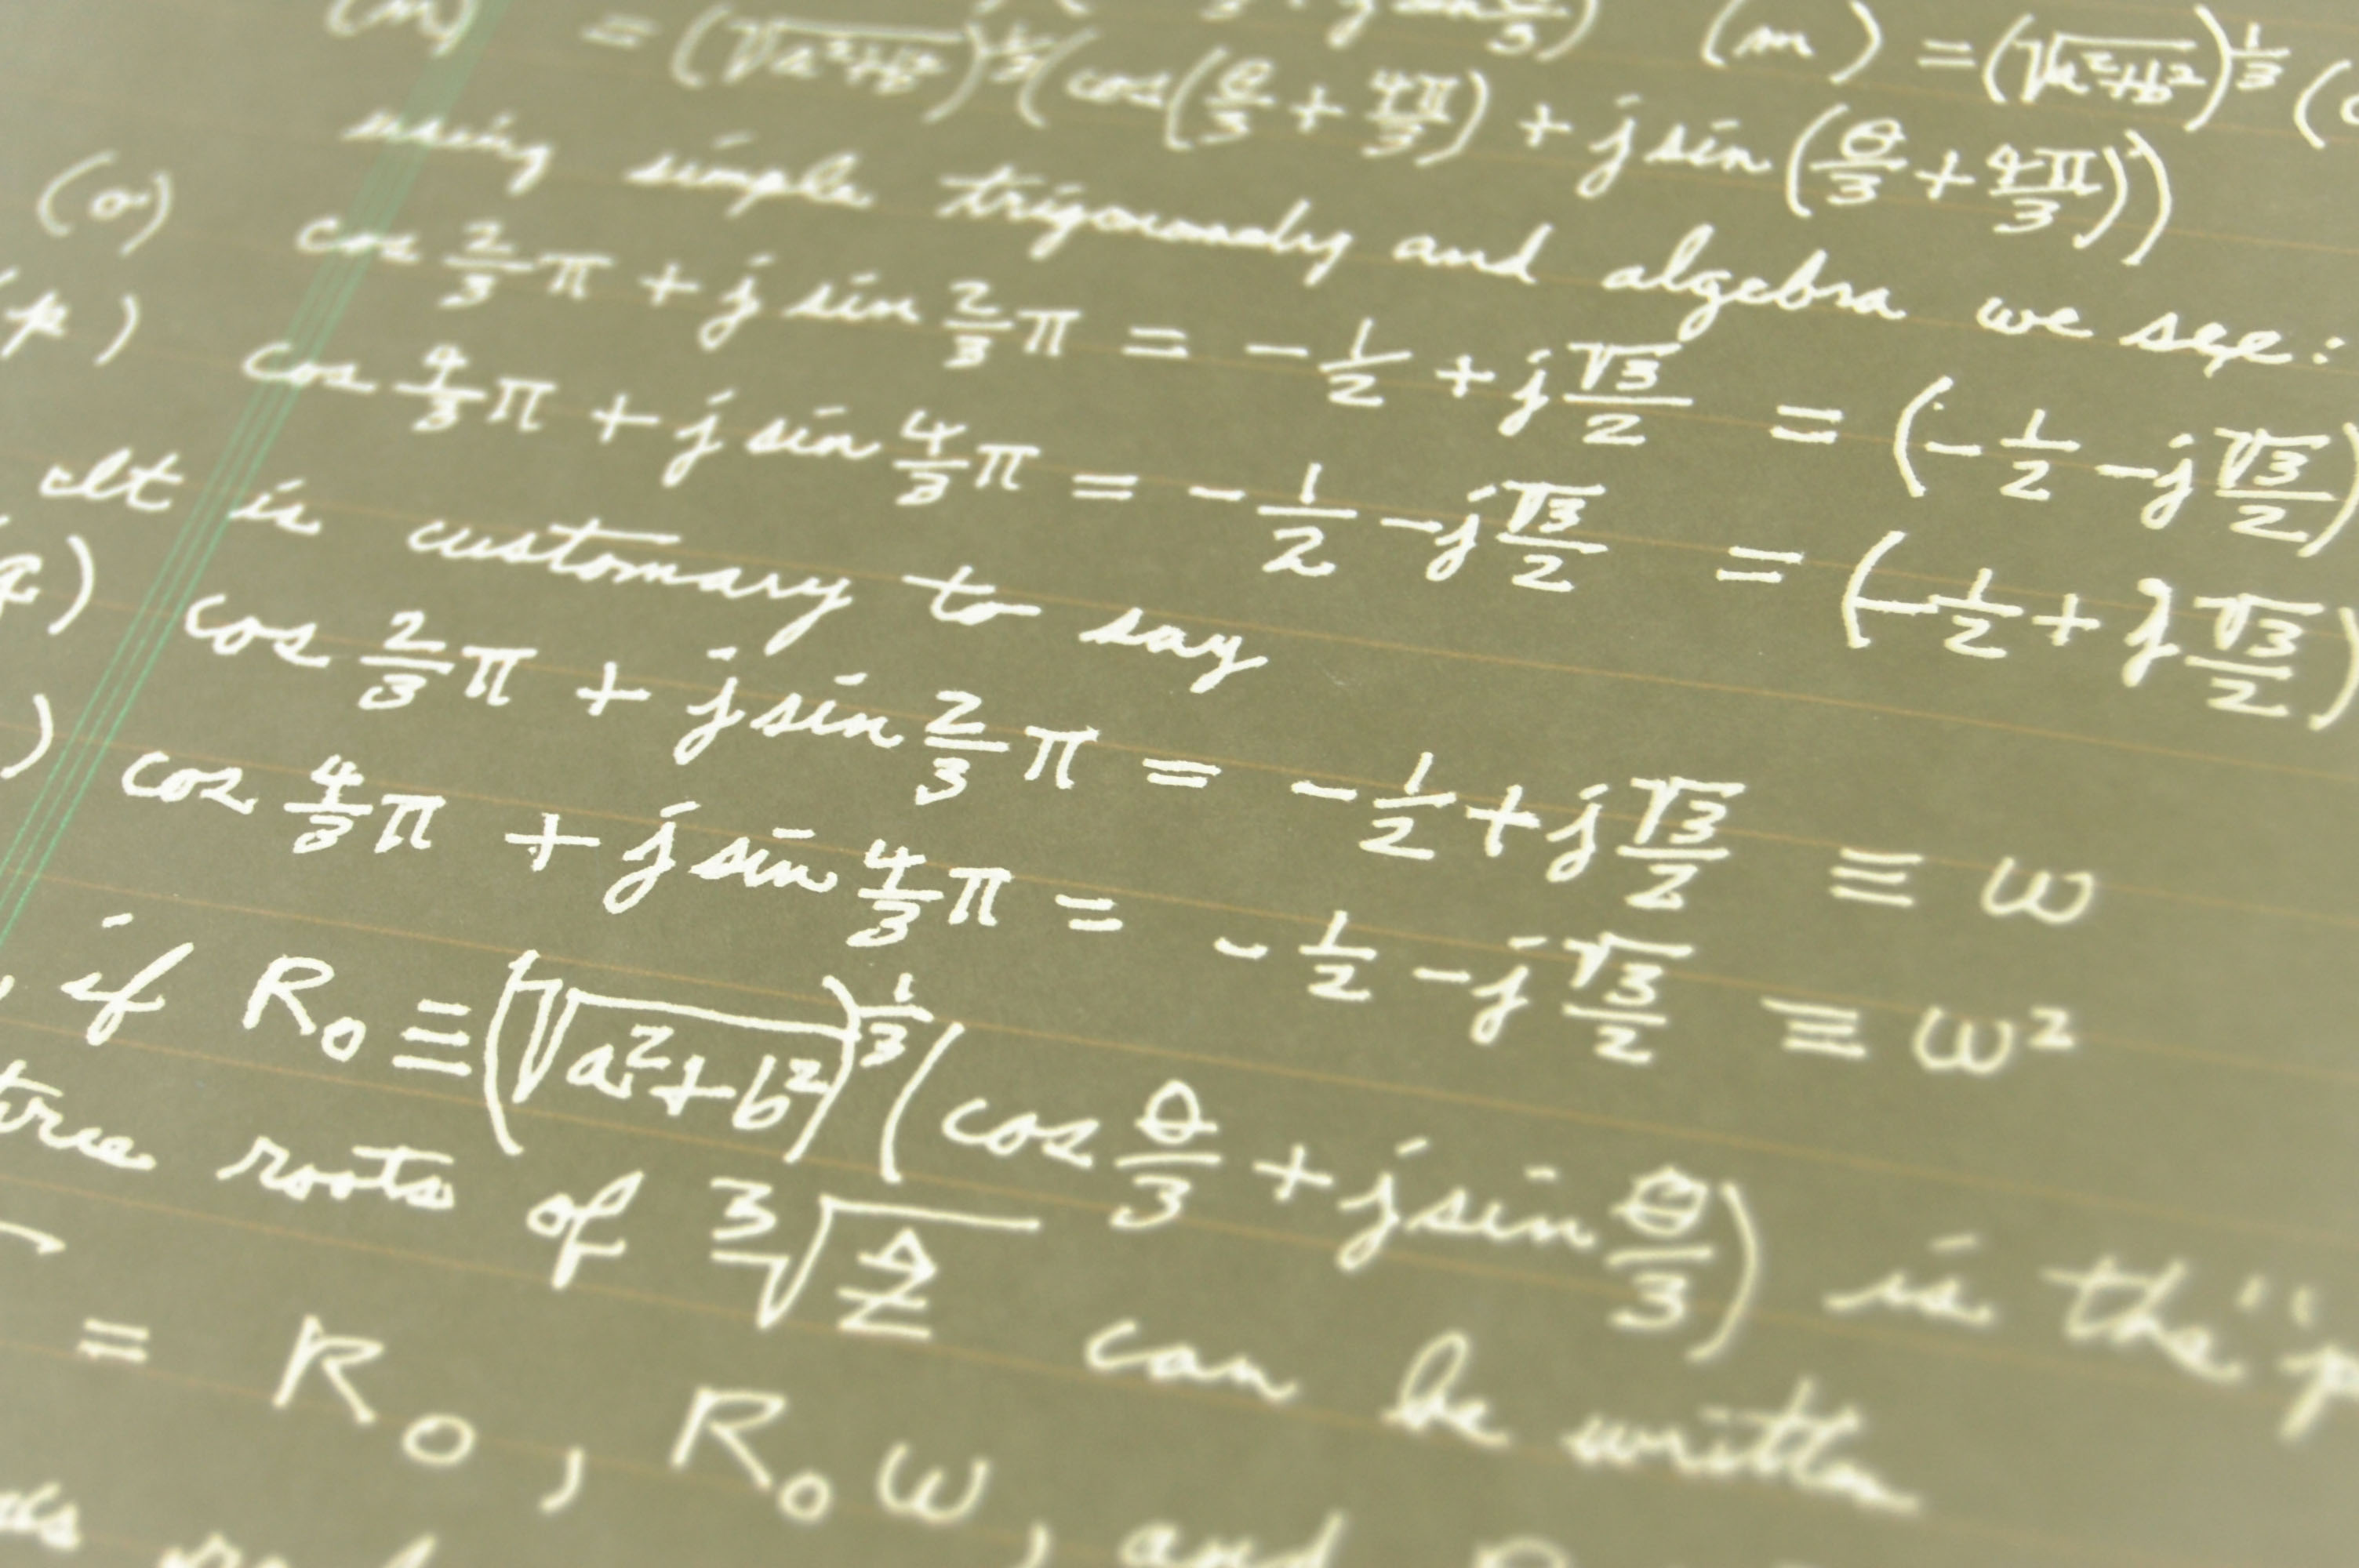 (m) = (√a²+b²)^⅓ (cos(θ/3 + 4π/3) + j sin(θ/3 + 4π/3))
(m) = (√a²+b²)^⅓ (
using simple trigonometry and algebra we see:
(o) cos 2/3 π + j sin 2/3 π = - 1/2 + j √3/2 = (- 1/2 - j √3/2)
(p) cos 4/3 π + j sin 4/3 π = - 1/2 - j √3/2 = (- 1/2 + j √3/2)
It is customary to say
(q) cos 2/3 π + j sin 2/3 π = - 1/2 + j √3/2 ≡ ω
) cos 4/3 π + j sin 4/3 π = - 1/2 - j √3/2 ≡ ω²
, if R₀ ≡ (√a²+b²)^⅓ (cos θ/3 + j sin θ/3) is the "p
roots of ∛Ẑ can be written
= R₀ , R₀ ω , and